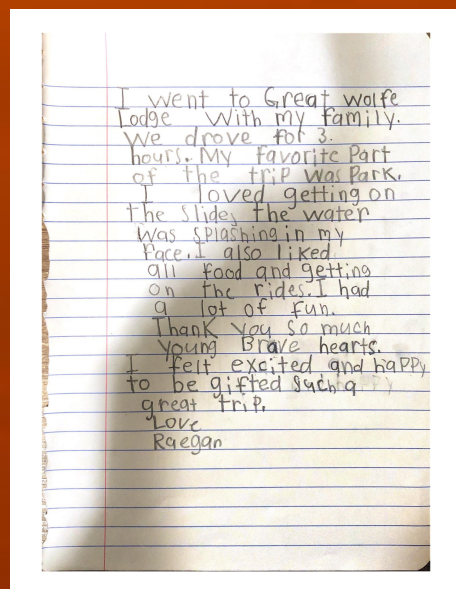 I went to Great wolfe
Lodge with my family.
We drove for 3.
hours. My favorite Part
of the trip was Park.
I loved getting on
the slide, the water
was splashing in my
face. I also liked
all food and getting
on the rides. I had
a lot of fun.
Thank you so much
Young Brave hearts.
I felt excited and happy
to be gifted such a
great trip.
Love
Raegan